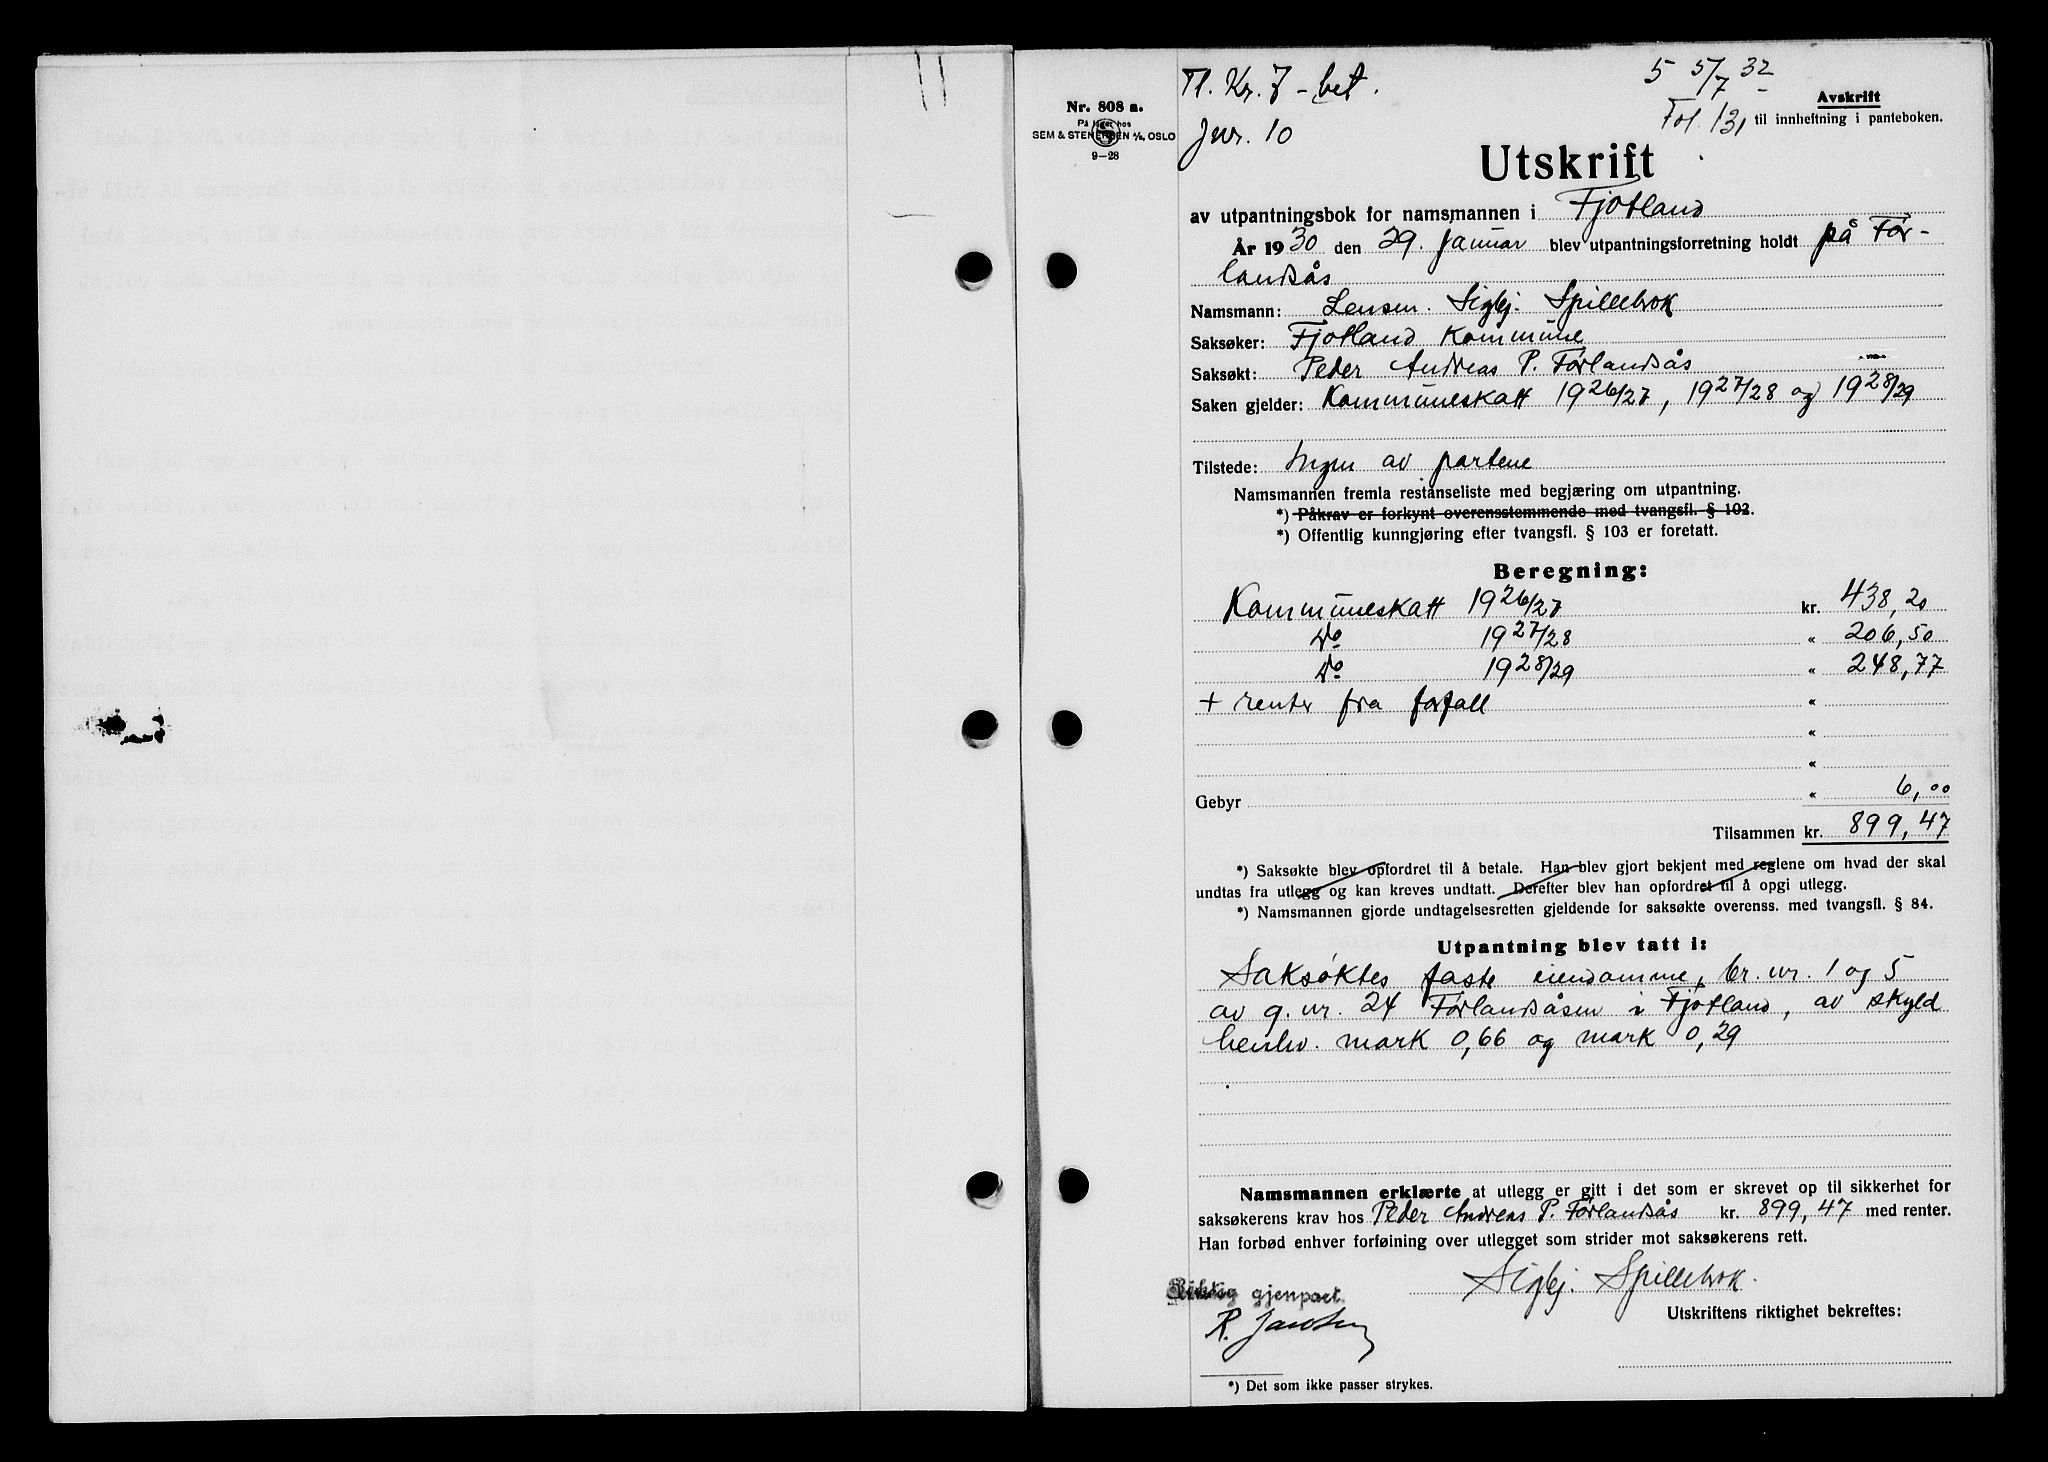 Tl. Kr. 7 - bet.
Jnr. 10
Nr. 808 a.
På lager hos
SEM & STENERSEN A/S, OSLO
9—28
5 5/7 32
Fol. 131
Avskrift
til innheftning i panteboken.
Utskrift
av utpantningsbok for namsmannen i Fjotland
År 1930 den 29. januar blev utpantningsforretning holdt på Før-
landsås
Namsmann: Lensm. Sigbj. Spillebrok
Saksøker: Fjotland Kommune
Saksøkt: Peder Andreas P. Førlandsås
Saken gjelder: Kommuneskatt 1926/27, 1927/28 og 1928/29
Tilstede: Ingen av partene
Namsmannen fremla restanseliste med begjæring om utpantning.
*) Påkrav er forkynt overensstemmende med tvangsfl. § 102.
*) Offentlig kunngjøring efter tvangsfl. § 103 er foretatt.
Beregning:
Kommuneskatt 1926/27 kr. 438,20
Do 1927/28 « 206,50
Do 1928/29 « 248,77
+ renter fra forfall «
«
«
Gebyr « 6,00
Tilsammen kr. 899,47
*) Saksøkte blev opfordret til å betale. Han blev gjort bekjent med reglene om hvad der skal
undtas fra utlegg og kan kreves undtatt. Derefter blev han opfordret til å opgi utlegg.
*) Namsmannen gjorde undtagelsesretten gjeldende for saksøkte overenss. med tvangsfl. § 84.
Utpantning blev tatt i:
Saksøktes faste eiendomme, br. nr. 1 og 5
av g. nr. 24 Førlandsåsen i Fjotland, av skyld
henhv. mark 0,66 og mark 0,29
Namsmannen erklærte at utlegg er gitt i det som er skrevet op til sikkerhet for
saksøkerens krav hos Peder Andreas P. Førlandsås kr. 899,47 med renter.
Han forbød enhver forføining over utlegget som strider mot saksøkerens rett.
Sigbj. Spillebrok.
Riktig gjenpart
Utskriftens riktighet bekreftes:
*) Det som ikke passer strykes.